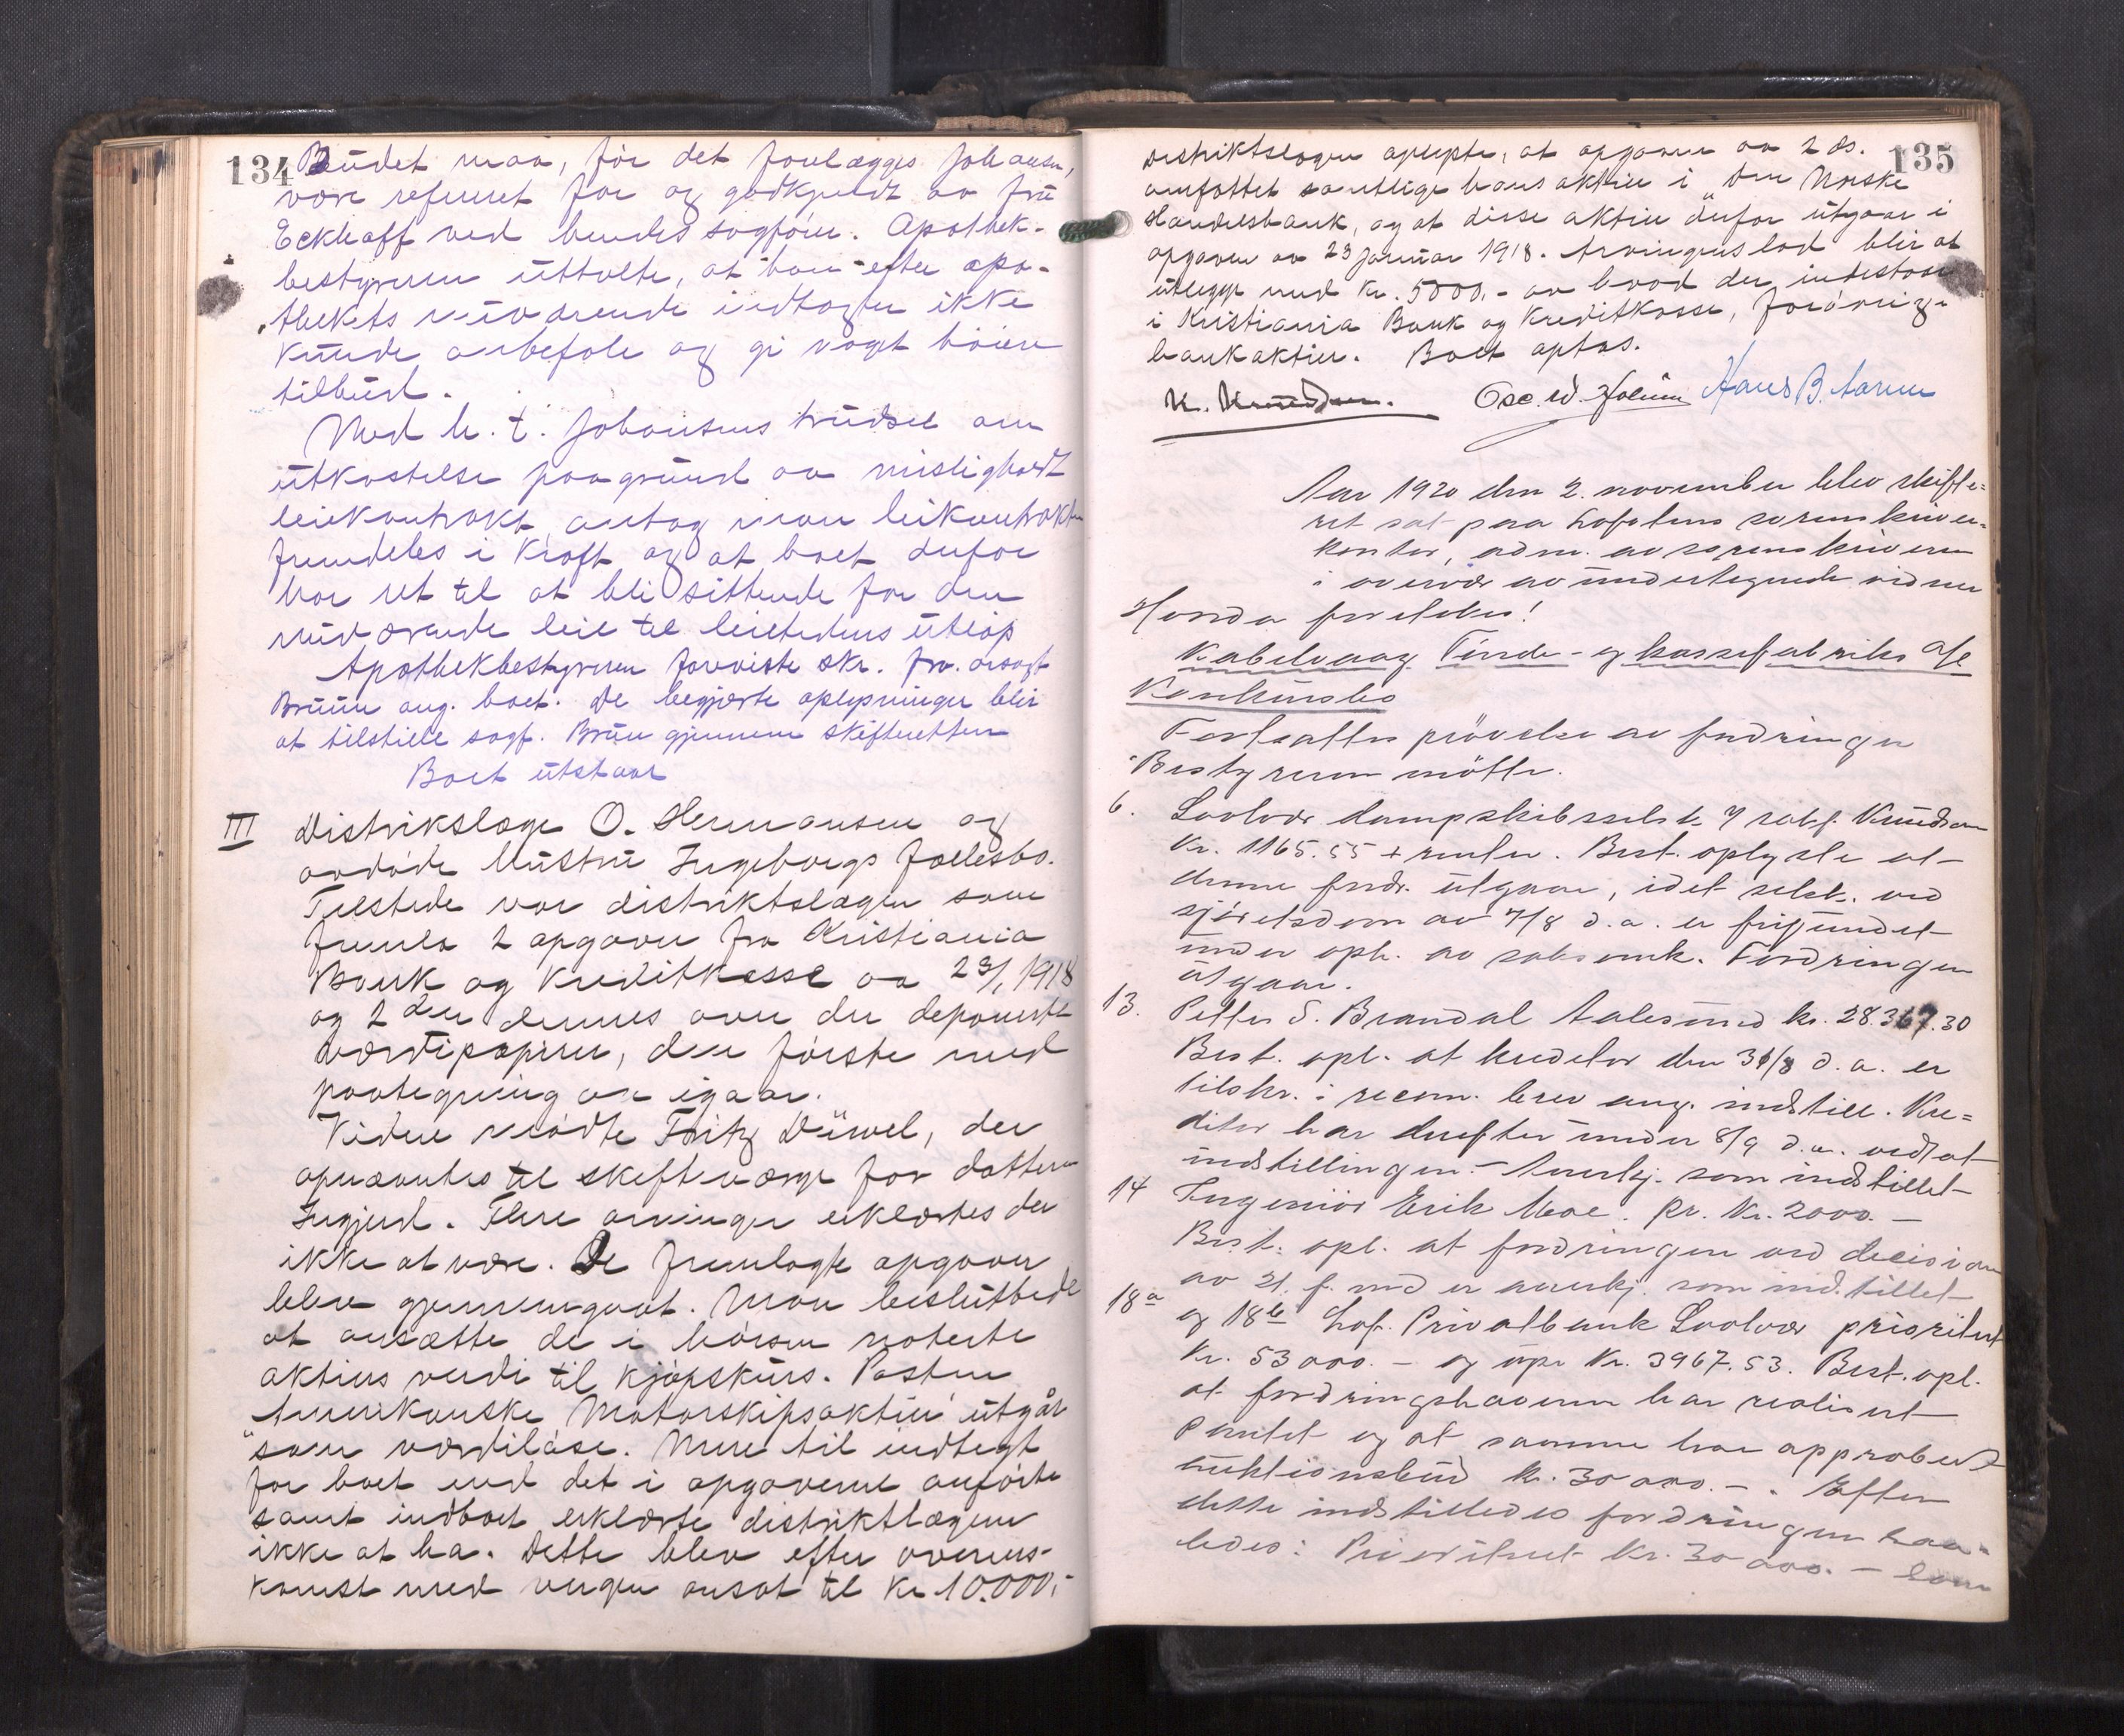 134
Budet maa, før det forelægges Johansen,
være referert for og godkjendt av fru
Eckhoff ved hendes sagfører. Apothek-
bestyreren uttalte, at han efter apo-
thekets nuværende indtægter ikke
kunde anbefale og gi noget høiere
tilbud.
Med h. t. Johansens trudsel om
utkastelse paa grund av misligholdt
leiekontrakt, antog man leiekontrakten
fremdeles i kraft og at boet derfor
har ret til at bli sittende for den
nuværende leie til leietidens utløp
Apothekbestyreren foreviste skr. fra. orsagf.
Bruun ang. boet. De begjærte oplysninger blir
at tilstille sagf. Bruun gjennem skifteretten
Boet utstaar
III Distrikslæge O. Hermansen og
avdøde hustru Ingeborgs fællesbo.
Tilstede var distriktslægen som
fremla 2 opgaver fra Kristiania
Bank og Kreditkasse av 23/1 1918
og 2den dennes over der deponerte
værdipapirer, den første med
paategning av igaar.
Videre mødte Fritz Düwel, der
opnævntes til skifteværge for datteren
Ingjerd. Flere arvinger erklærtes der
ikke at være. De fremlagte opgaver
blev gjennemgaat. Man besluttede
at ansætte de i børsen noterte
aktiers verdi til kjøpskurs. Posten
"Amerikanske Motorskipsaktier" utgår
som værdiløse. Mere til indtægt
for boet end det i opgaverne anførte
samt indboet erklærte distriktlægen
ikke at ha. Dette blev efter overens-
komst med vergen ansat til kr 10.000,-
135
Distriktslægen oplyste, at opgaven av 2 ds.
omfattet samtlige hans aktier i "Den Norske
Handelsbank, og at disse aktier derfor utgaar i
opgaven av 23 Januar 1918. Arvingens lod blir at
utlegge med kr. 5000,- av hvad der indestaar
i Kristiania Bank og Kreditkasse, forøvrig i
bankaktier. Boet optas.
K. Knudsen. Osc. W. Hans B. Aarum
Aar 1920 den 2. november blev skifte-
ret sat paa Lofotens sorenskriver-
kontor, adm. av sorenskriveren
i overvær av undertegnede vidner
Hvorda foretokes!
Kabelvaag Tønde- og kassefabriks A/S
Konkursbo
Fortsattes prøvelse av fordringer
Bestyreren møtte.
6. Svolvær dampskibsselsk. v/ sakf. Knudsen
Kr. 1165.55 + renter. Best. oplyste at
denne fordr. utgaar, idet selsk. ved
sjøretsdom av 7/8 d. a. er frifundet
under oph. av saksomk. Fordringen
utgaar.
13. Petter S. Brandal Aalesund kr. 28.367.30
Best. opl. at kreditor den 31/8 d. a. er
tilskr. i recom. brev ang. indstill. Kre-
ditor har derefter under 8/9 d. a. vedtat
indstillingen. - Anerkj. som indstillet
14 Ingeniør Erik Moe. Pr. Kr. 2000. -
Best. opl. at fordringen ved decision
av 21. f. md er anerkj. som indstillet
18a og 18b Lof. Privatbank Svolvær prioritert
Kr. 53000. - og upr Kr. 3967.53. Best. opl.
at fordringshaveren har realisert
Pantet og at samme har approbert
auktionsbud kr. 30000. - . Efter
dette indstilledes fordringen saa-
ledes: Prioritert Kr. 30000. - som